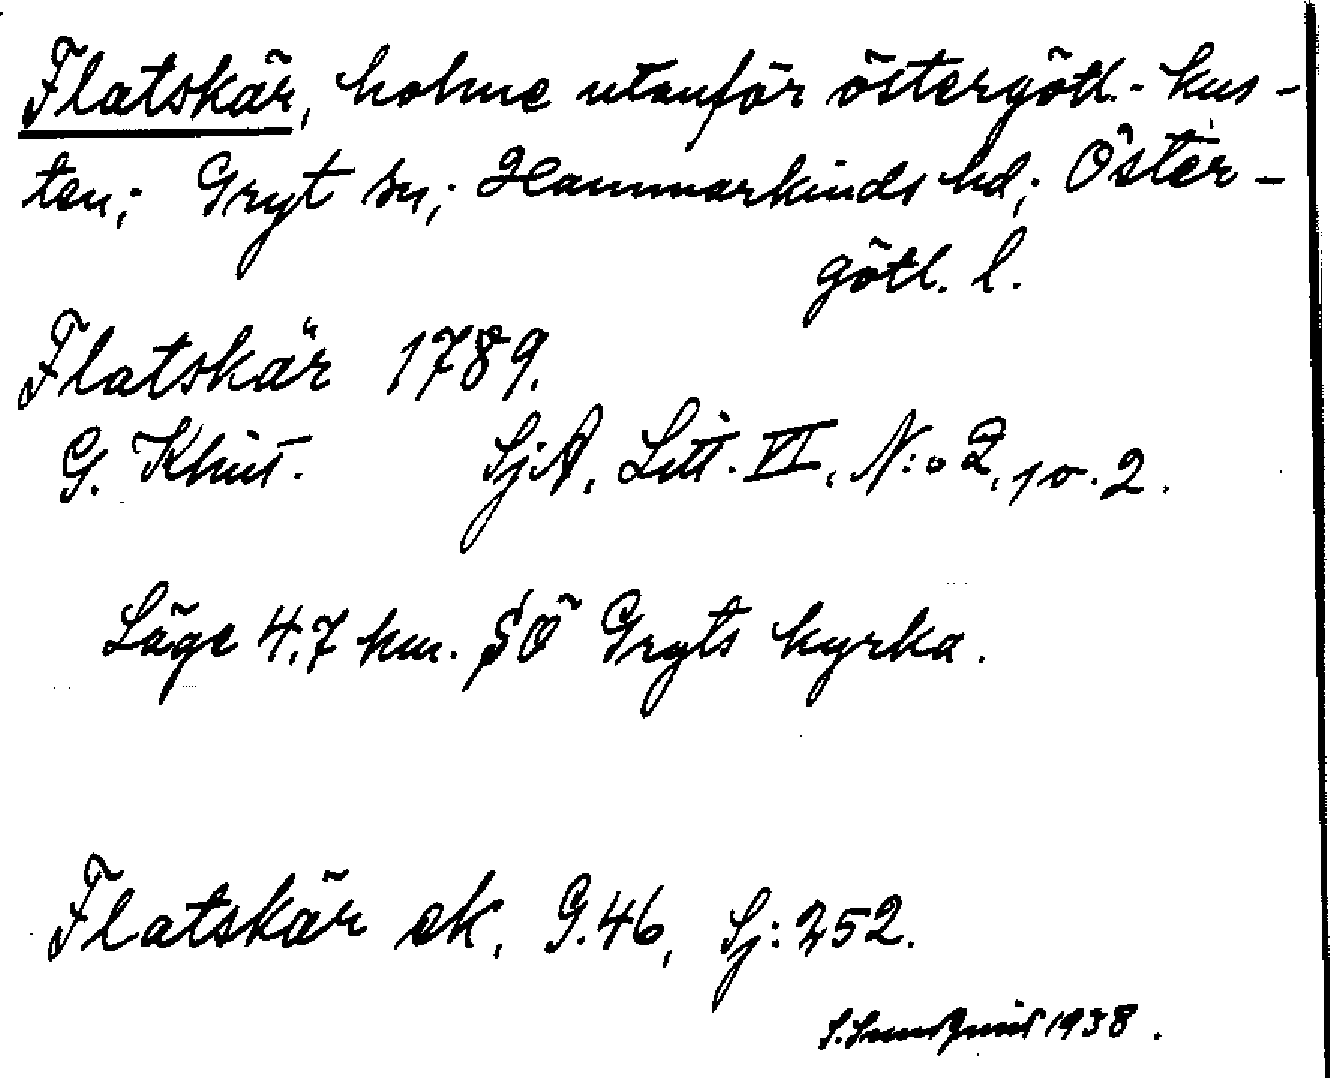 Flatskär, holme utanför östergötl.- kus-
ten; Gryt sn; Hammarkinds hd; Öster-
götl. l.
Flatskär 1789.
G. Klint. SjA, Litt. VI, N:o 2, p. 2.
Läge 4,7 km. SÖ Gryts kyrka.
Flatskär ek, G.46, Sj: 252.
1938.